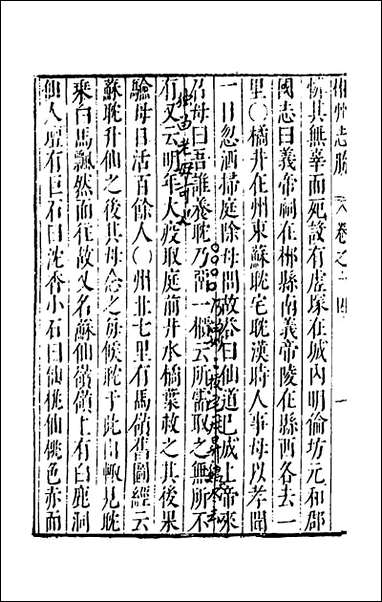 州志勝 卷之十四 一
憐其無辜而死設有虛塚在城內明倫坊元和郡
國志曰義帝祠在郴縣南義帝陵在縣西各去一
里〇橘井在州東蘇耽宅耽漢時人事母以孝聞
一日忽洒掃庭除母問故答曰仙道已成上帝來
召母曰吾誰養耽乃留一櫃云所需取之無所不
有又云明年大疫取庭前井水橘葉救之其後果
驗母日活百餘人〇州北七里有馬嶺舊圖經云
蘇耽升仙之後其母念之每候耽于此曰輒見耽
乘白馬飄然而往故又名蘇仙嶺嶺上有白鹿洞
仙人壇有巨石曰沈香小石曰仙桃仙桃色赤而